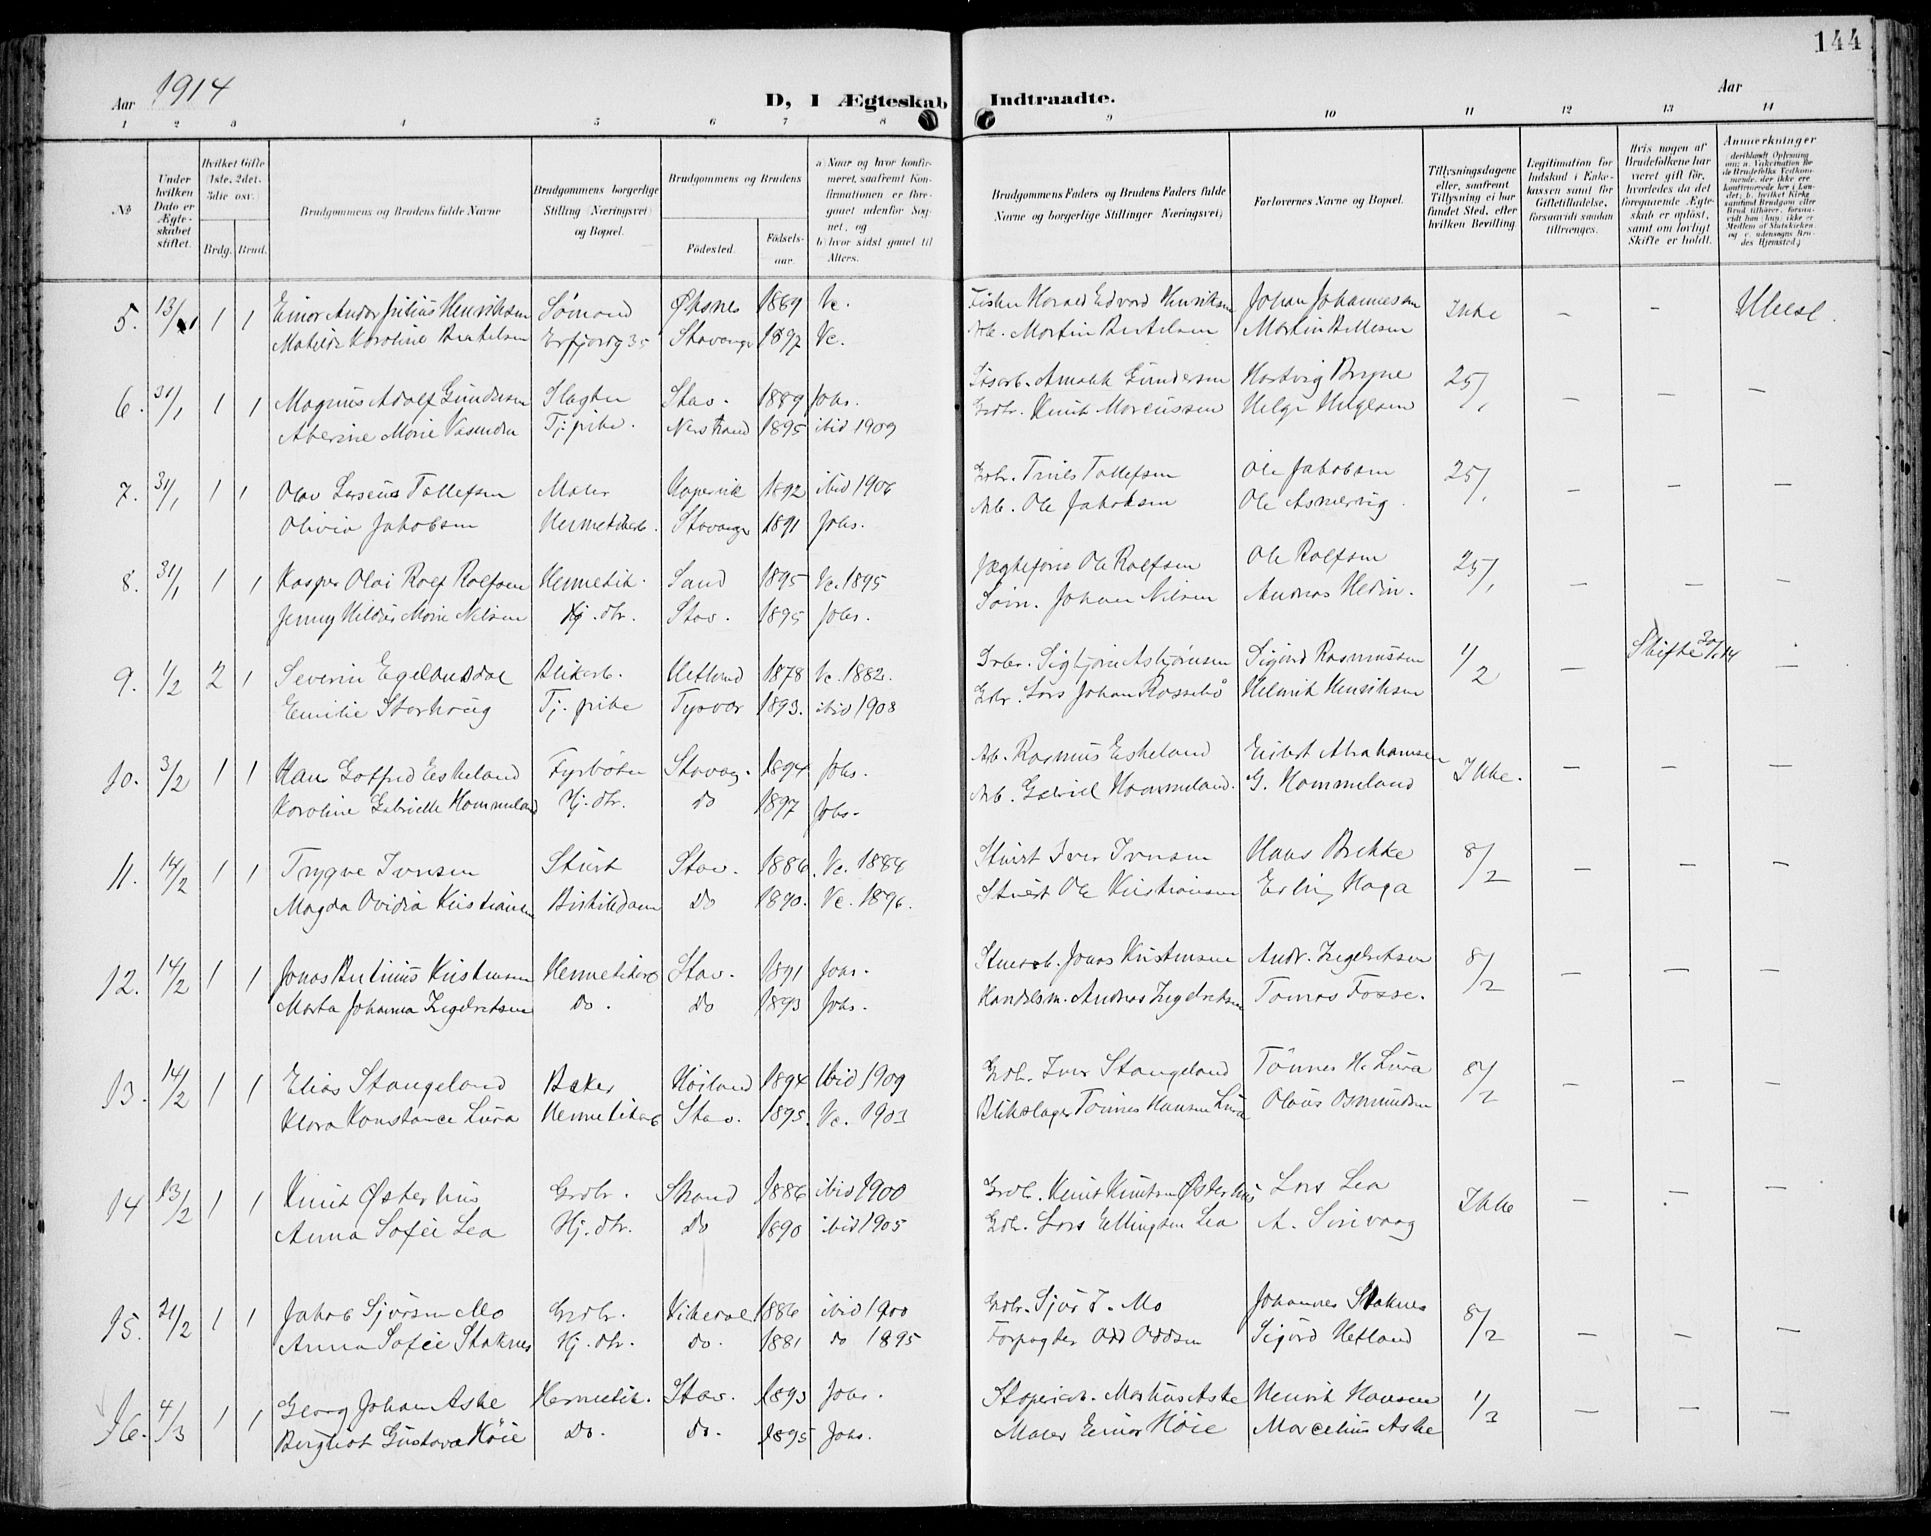 144
Aar 1914
D, I Ægteskab Indtraadte.
Aar
1 2 3 4 5 6 7 8 9 10 11 12 13 14
No
Under hvilken Dato er Ægteskabet stiftet.
Hvilket Gifte (1ste, 2det, 3die osv.)
Brdg. Brud.
Brudgommens og Brudens fulde Navne
Brudgommens borgerlige Stilling (Næringsvei) og Bopæl.
Brudgommens og Brudens
Fødested.
Fødselsaar.
a) Naar og hvor konfirmeret, saafremt Konfirmationen er foregaaet udenfor Sognet, og
b) hvor sidst gaaet til Alters.
Brudgommens Faders og Brudens Faders fulde Navne og borgerlige Stillinger Næringsvei)
Forlovernes Navne og Bopæl.
Tillysningsdagene eller, saafremt Tillysning ei har fundet Sted, efter hvilken Bevilling.
Legitimation for Indskud i Enkekassen samt for Giftetilladelse, forsaavidt saadan tiltrænges.
Hvis nogen af Brudefolkene har været gift før, hvorledes da det foregaaende Ægteskab er opløst, samt om lovligt Skifte er holdt.
Anmærkninger
5. 13/1 1 1 Einar Andor Julius Henriksen Sømand Øksnes 1889 Vc. Fisker Harald Edvard Henriksen Johan Johannessen Ikke – –
Matilde Karoline Bertelsen Erfjordg 35 Stavanger 1892 Vc. Arb. Martin Bertelsen Martin Bertelsen
6. 31/1 1 1 Magnus Adolf Gundersen Slagter Stav. 1889 Johs. Amalik Gundersen Hartvig Bryne 25/1 – – –
Marie Tj. pike. Nerstrand 1895 ibid 1909 Grdbr. Knut Marcussen Helge Helgesen
7. 31/1 1 1 Olav Tollefsen Maler Kopervik 1892 ibid 1906 Tollefsen Ole Jakobsen 25/1 – – –
Olivia Jakobsen Hermetikarb. Stavanger 1891 Johs. Arb. Ole Jakobsen Ole Asmervig.
8. 31/1 1 1 Kasper Olai Rolf Rolfsen Hermetik. Sand 1895 Vc. 1895 Jægtefører Ole Rolfsen Ole Rolfsen 25/1 – – –
Jenny Hildur Marie Nilsen Hj. dtr. Stav. 1895 Johs. Søm. Johan Nilsen Andreas Hedin.
9. 1/2 2 1 Severin Egelandsdal Blikarb. Hetland 1878 Vc. 1882. Sigbjørn Asbjørnsen Sigurd Rasmussen 1/2 – Skifte 20/1 14 –
Emilie Storhoug Tj. pike Tysvær 1893. ibid 1908 Grbr. Lars Johan Rossebø Henrik Henriksen
10. 3/2 1 1 Hans Gotfred Eskeland Fyrbøter Stavang. 1894 Johs. Arb. Rasmus Eskeland Abrahamsen Ikke. – – –
Karoline Gabrielle Hommeland Hj. dtr. do 1897 Johs. Arb. Gabriel Hommeland. G. Hommeland
11. 14/2 1 1 Trygve Iversen Stuert Stav. 1886 Vc. 1884 Stuert Iver Iversen Hans Brekke 8/2 – – –
Magda Ovidia Kristiansen Butikkdame Do 1890. Vc. 1896. Stuert Ole Kristiansen Erling Haga
12. 14/2 1 1 Jonas Kristensen Hermetikarb Stav. 1891 Johs. Jonas Kristensen Andr. Ingebretsen 8/2 – – –
Marta Johanna Ingebretsen Do. Do 1893 Johs. Handelsm. Andreas Ingebretsen Tomas Fosse.
13. 14/2 1 1 Elias Stangeland Baker Høiland 1894 Ibid 1909 Grdbr. Iver Stangeland Tönnes H. Lura 8/2 – – –
Klara Konstance Lura Hermetikarb Stav. 1895. Vc. 1903 Blikslager Tönnes Hansen Lura Olaus Osmundsen
14 13/2 1 1 Knut Østerhus Grdbr. Strand 1886 ibid 1900 Grdbr. Knut Knutsen Østerhus Lars Lea Ikke – – –
Anna Sofie Lea Hj. dtr. Do 1890 ibid 1905 Grdbr. Lars Ellingsen Lea A. Sirivaag
15. 21/2 1 1 Jakob Sjursen Mo Grdbr. Vikedal 1886 ibid 1900 Grdbr. Sjur J. Mo Johannes Staknes 8/2 – – –
Anna Sofie Staknes Hj. dtr. do. 1881 do 1895 Forpagter Odd Oddsen Sigurd Hetland
16. 4/3 1 1 Georg Johan Aske Hermetik. Stav. 1893 Johs. Markus Aske Henrik Hansen 1/3 – – –
Bergliot Gustava Höie Do. Do. 1895 Johs. Maler Einar Höie Marcelius Aske